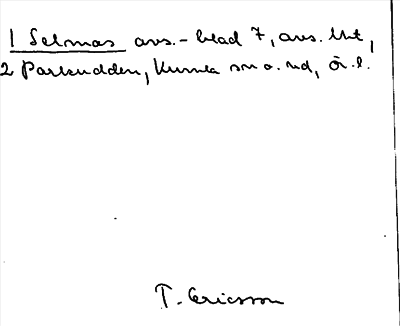 1 Selmas avs.-blad 7, avs. Mt,
2 Parkudden, Kumla sn o. hd, Ör. l.
T. Ericsson